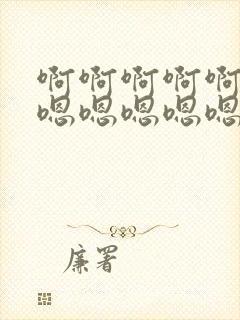 啊啊啊啊啊
嗯嗯嗯嗯嗯
廉署